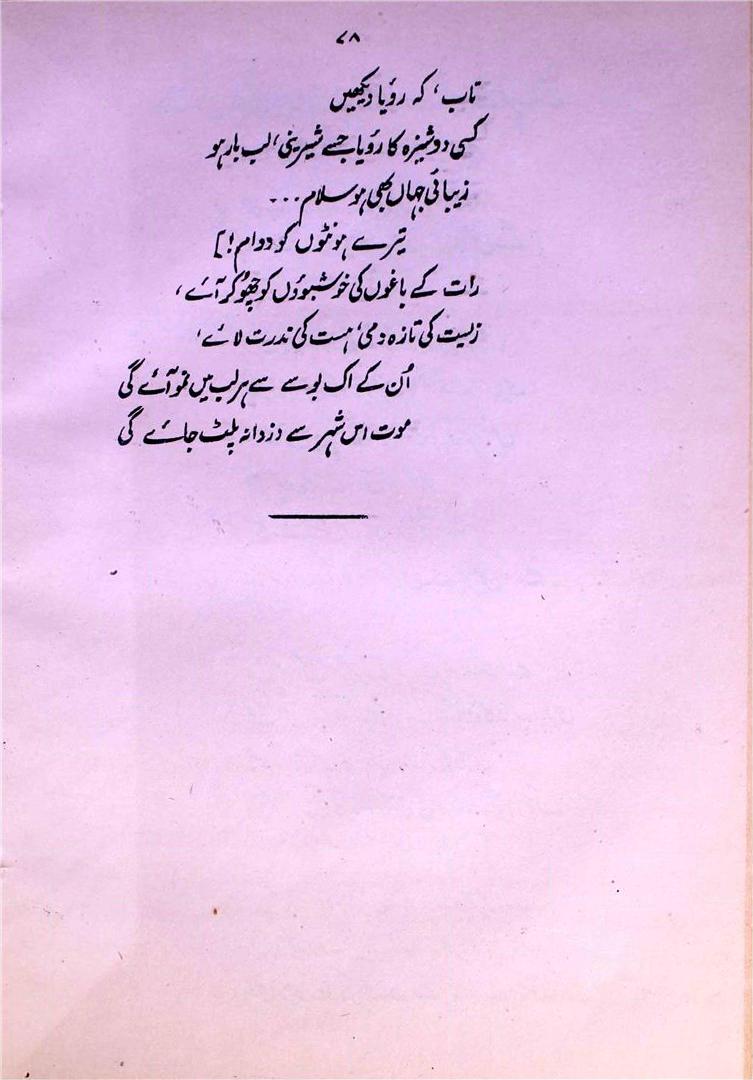 ۷۸
تاب، کہ رؤیا دیکھیں
کسی دوشیزہ کا رؤیا جسے شیرینی، لب بار ہو
زیبائی جہاں بھی ہو سلام...
تیرے ہونٹوں کو دوام!]
رات کے باغوں کی خوشبوؤں کو چھو کر آئے،
زیست کی تازہ دمی، ہست کی ندرت لائے،
اُن کے اک بوسے سے ہر لب میں نمو آئے گی
موت اس شہر سے دزدانہ پلٹ جائے گی